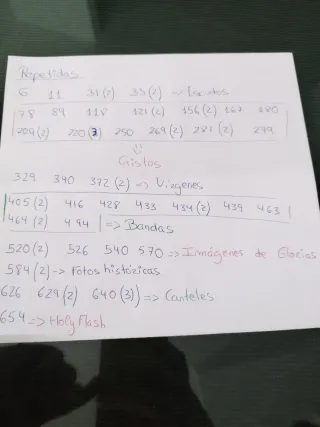 Repetidas
6 11 31(2) 33(2) → Escudos
78 89 118 121(2) 156(2) 167 180
209(2) 220(3) 250 269(2) 281(2) 299
⇓
Gistos
329 340 372(2) → Vírgenes
405(2) 416 428 433 434(2) 439 463
464(2) 494 ⇒ Bandas
520(2) 526 540 570 ⇒ Imágenes de Glorias
584(2) → Fotos históricas
626 629(2) 640(3) ⇒ Carteles
654 ⇒ Holy Flash